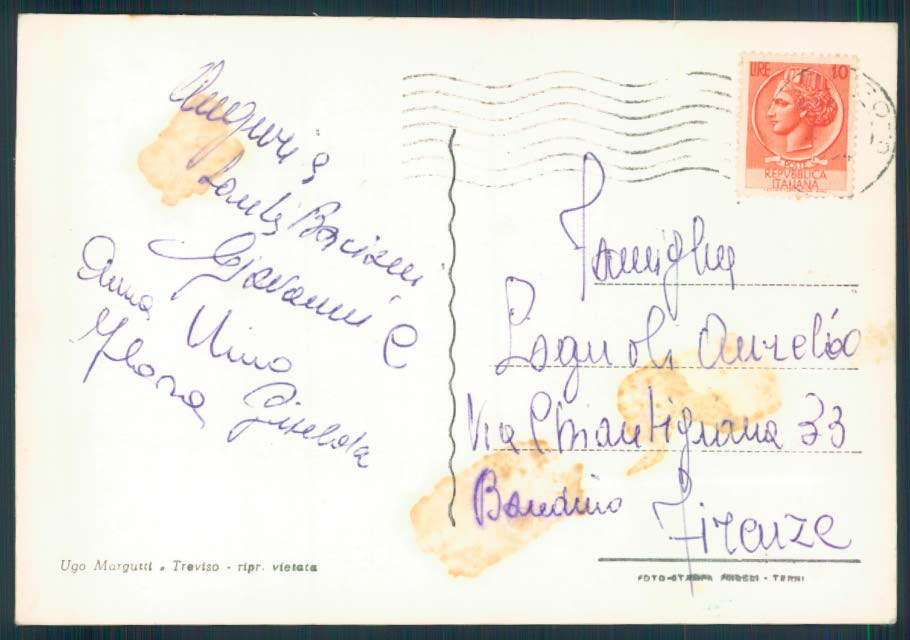 Auguri e
tanti Bacioni
Giovanni e
Anna Nino
Flora Giselda
LIRE 10
POSTE
REPVBBLICA
ITALIANA
Famiglia
Pagnoli Aurelio
Via Chiantigiana 33
Bandino Firenze
Ugo Margutti - Treviso - ripr. vietata
FOTO-STAMPA - TERNI